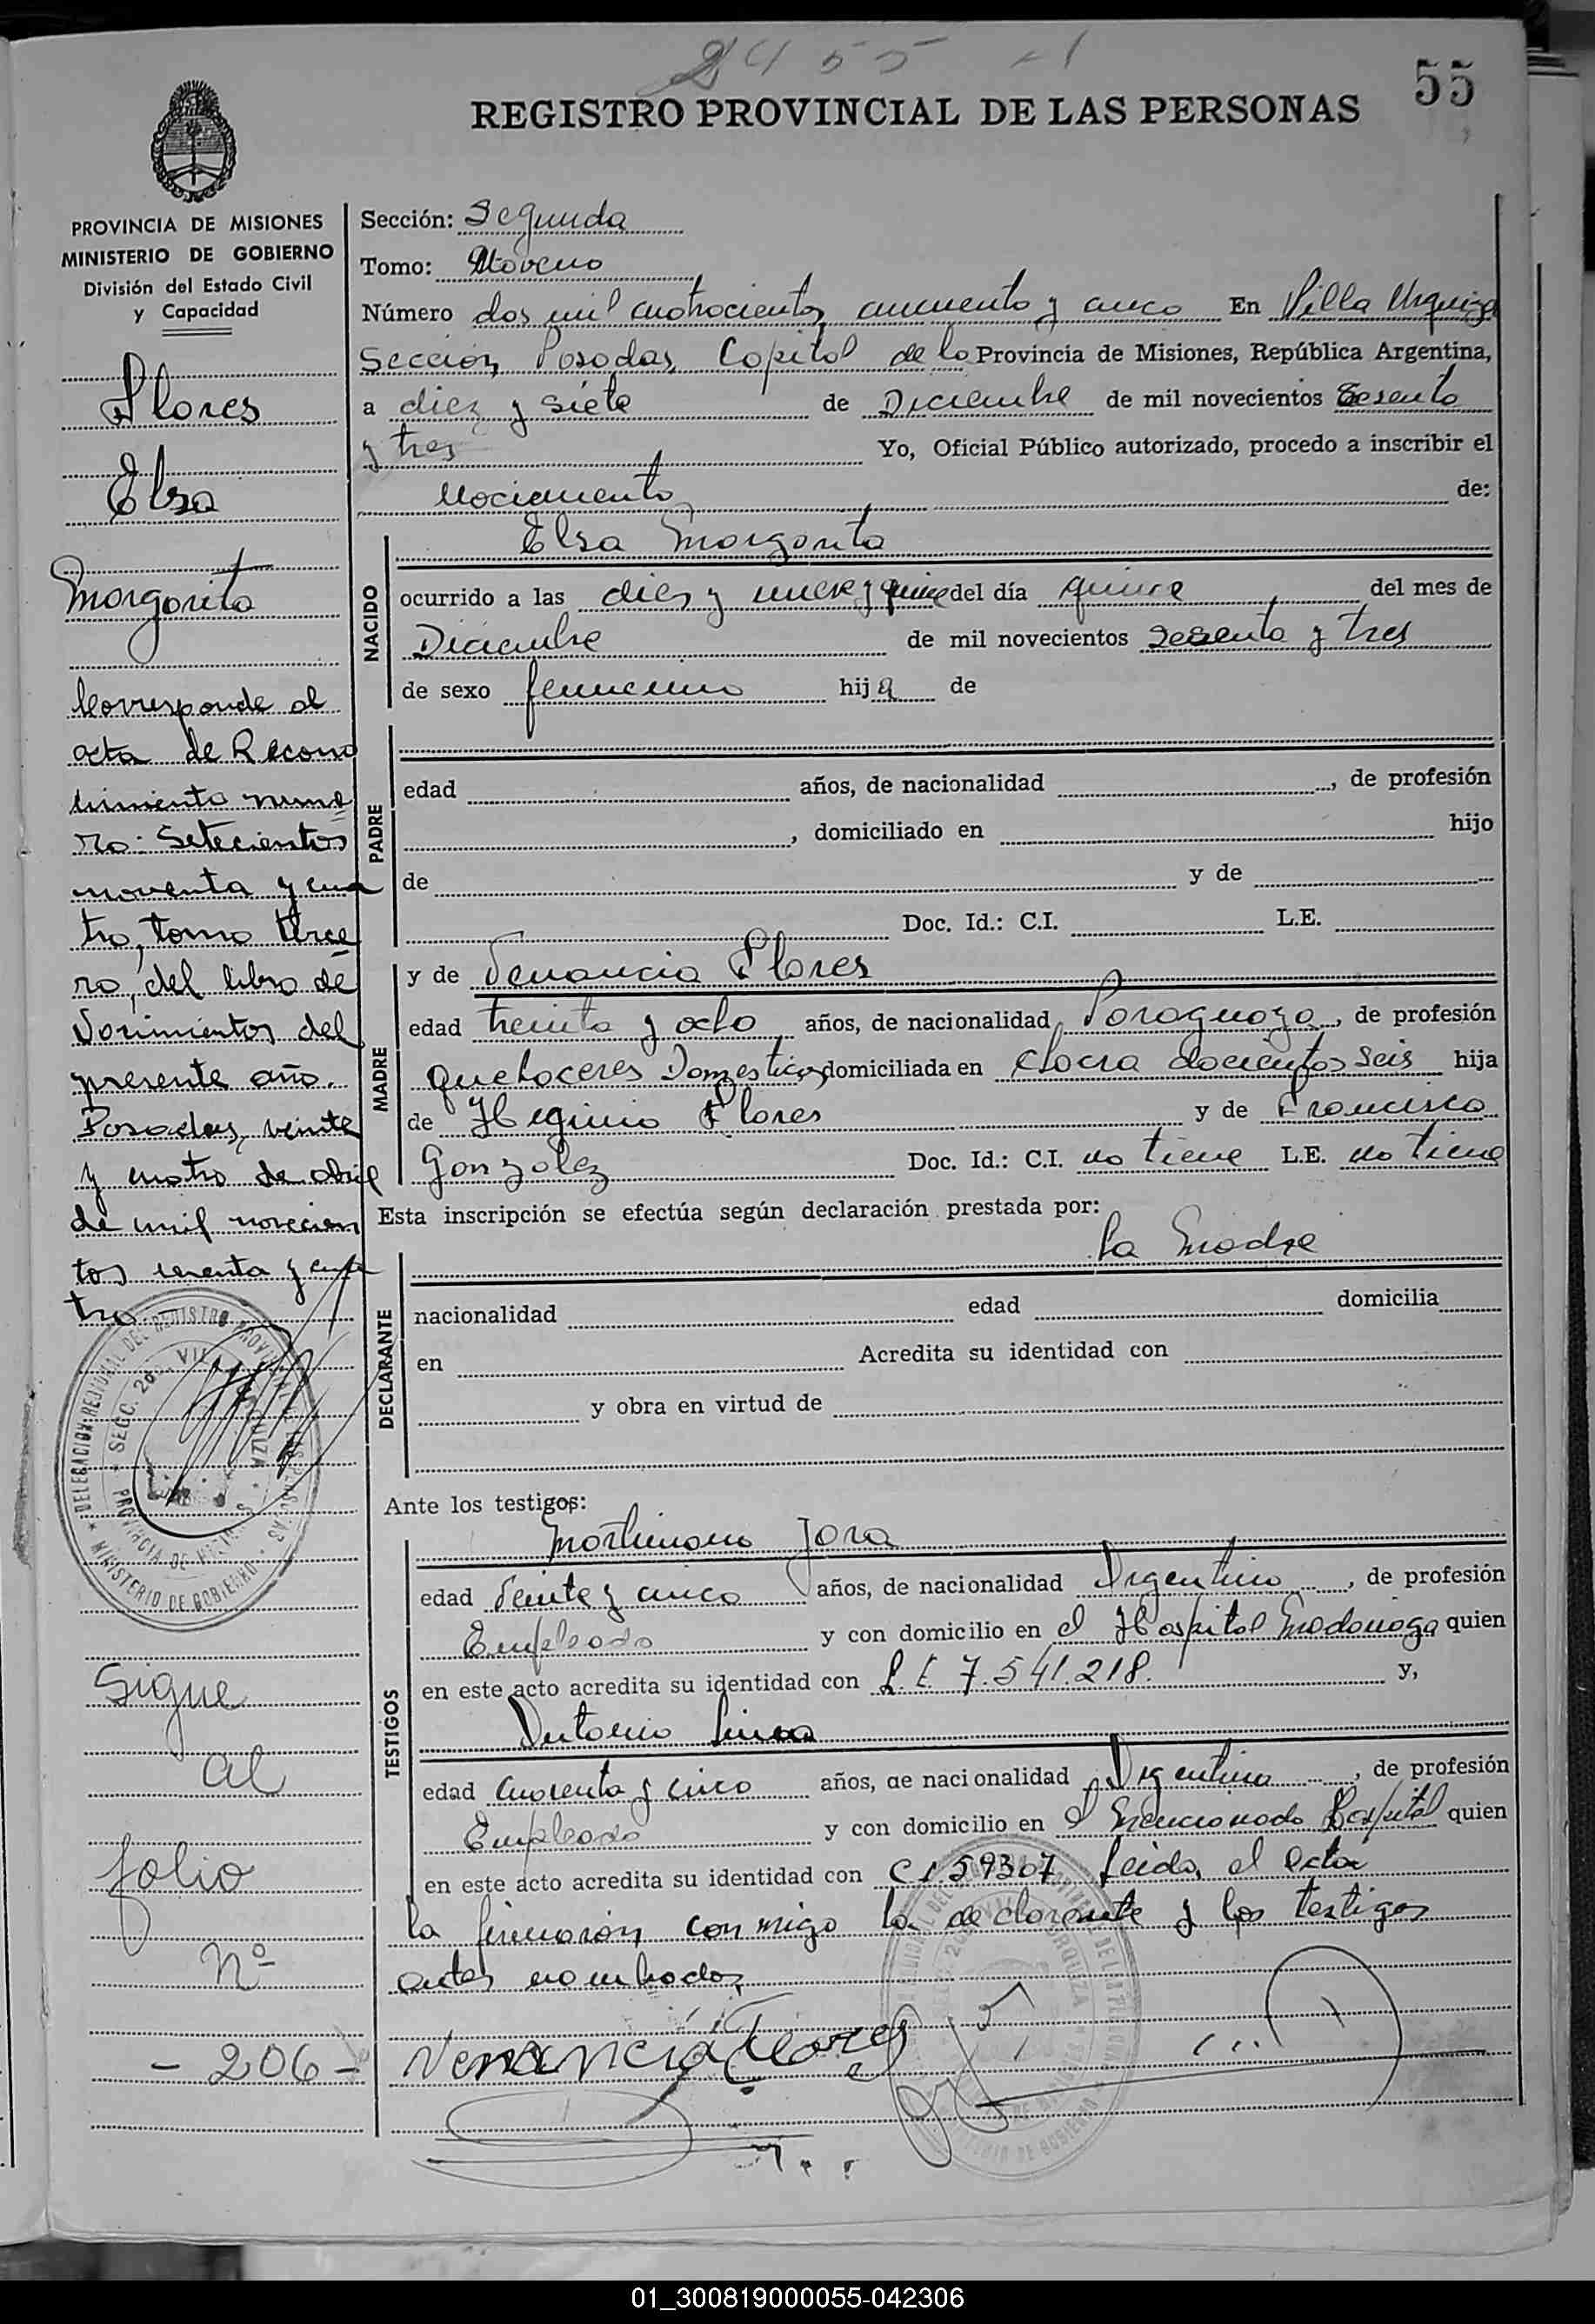 2455
55
REGISTRO PROVINCIAL DE LAS PERSONAS
PROVINCIA DE MISIONES
MINISTERIO DE GOBIERNO
División del Estado Civil
y Capacidad
Flores
Elsa
Margarita
Corresponde al
acta de Recono
cimiento nume
ro: Setecientos
noventa y cua
tro, tomo terce
ro, del libro de
Nacimientos del
presente año.
Posadas, veinte
y cuatro de abril
de mil novecien
tos sesenta y cua
tro.
DELEGACION REGIONAL DEL REGISTRO PROVINCIAL DE LAS PERSONAS
MINISTERIO DE GOBIERNO
SECC. 2da. VILLA URQUIZA
PROVINCIA DE MISIONES
Sigue
al
folio
Nº
- 206 -
Sección: Segunda
Tomo: Noveno
Número dos mil cuatrocientos cincuenta y cinco En Villa Urquiza
Sección Posadas, Capital de la Provincia de Misiones, República Argentina,
a diez y siete de Diciembre de mil novecientos sesenta
y tres Yo, Oficial Público autorizado, procedo a inscribir el
Nacimiento de:
NACIDO
Elsa Margarita
ocurrido a las diez y nueve y quince del día quince del mes de
Diciembre de mil novecientos sesenta y tres
de sexo femenino hija de
PADRE
edad años, de nacionalidad , de profesión
, domiciliado en hijo
de y de
Doc. Id.: C.I. L.E.
MADRE
y de Venancia Flores
edad treinta y ocho años, de nacionalidad Paraguaya, de profesión
quehaceres Domesticos domiciliada en chacra docientos seis hija
de Higinio Flores y de Francisca
Gonzalez Doc. Id.: C.I. no tiene L.E. no tiene
Esta inscripción se efectúa según declaración prestada por:
La Madre
DECLARANTE
nacionalidad edad domicilia
en Acredita su identidad con
y obra en virtud de
Ante los testigos:
TESTIGOS
Martiniano Jara
edad veinte y cinco años, de nacionalidad Argentino, de profesión
Empleado y con domicilio en el Hospital Madariaga quien
en este acto acredita su identidad con L.E. 7.541.218. y,
Antonio
edad cuarenta y cinco años, de nacionalidad Argentino, de profesión
Empleado y con domicilio en el mencionado Hospital quien
en este acto acredita su identidad con C.I. 59307 Leida, el acta
la firmaron conmigo la declarante y los testigos
antes nombrados
Venancia Flores
01_300819000055-042306